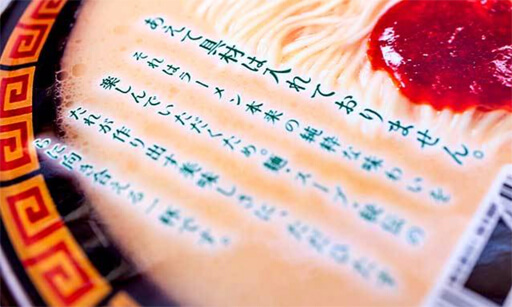 あえて具材は入れておりません。
それはラーメン本来の純粋な味わいを
楽しんでいただくため。麺・スープ・秘伝の
たれが作り出す美味しさに、ただひたす
らに向き合える一杯です。